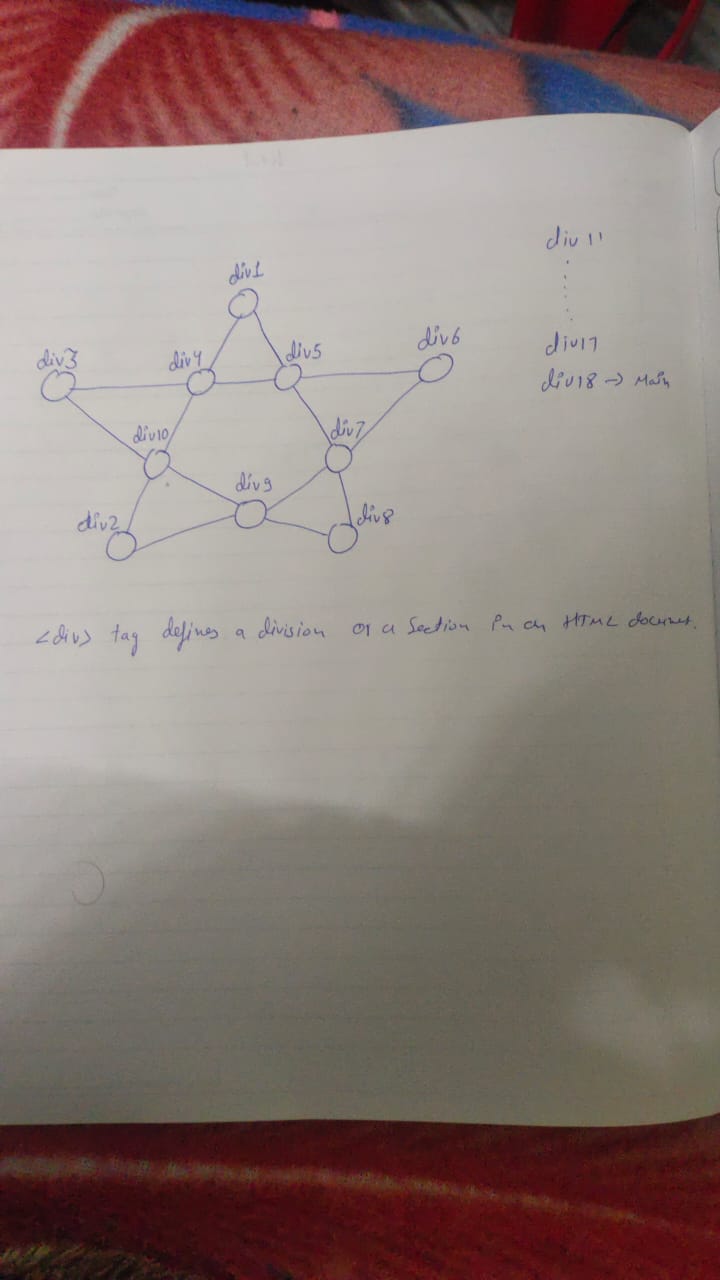 div1
div3
div4
div5
div6
div10
div7
div9
div2
div8
div 11
div17
div18 → Main
<div> tag defines a division or a Section in an HTML documet.